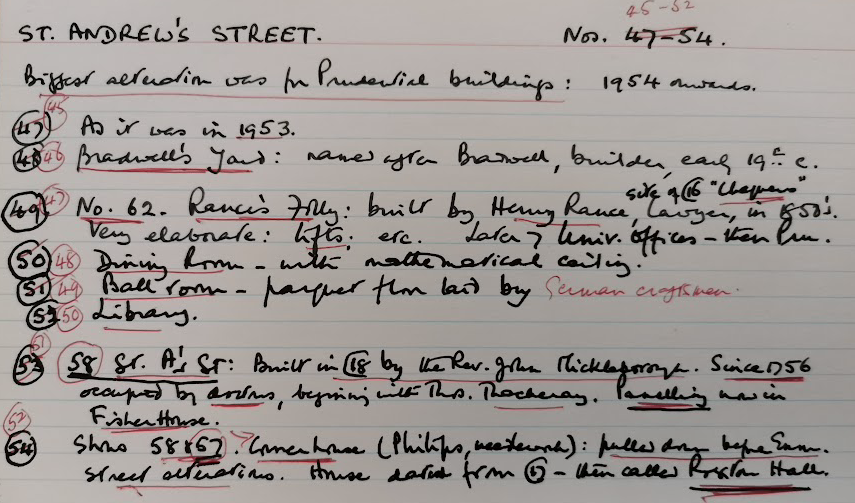 45-52
ST. ANDREW'S STREET. Nos. 47-54.
Biggest alteration was for Prudential buildings: 1954 onwards.
47 45 As it was in 1953.
48 46 Bradwell's Yard: named after Bradwell, builder, early 19th c.
site of 16 "Chequers"
49 47 No. 62. Rance's Folly: built by Henry Rance, lawyer, in 1850's.
Very elaborate: lifts, etc. Later Univ. offices - then Pru.
50 48 Dining Room - with mathematical ceiling.
51 49 Ball room - parquet floor laid by German craftsmen.
50 Library.
53 51 58 St. A's St: Built in 18 by the Rev. John Mickleborough. Since 1756
occupied by doctors, beginning with Thos. Thackeray. Panelling now in
Fisher House.
54 52 Shows 58 & 57. Corner house (Philips, needlework): pulled down before Emm.
Street alterations. House dated from - then called Rosston Hall.